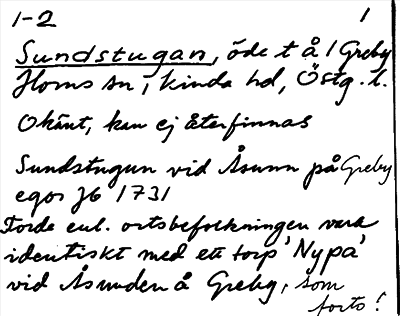 1-2 1
Sundstugan, öde t å 1 Greby
Horns sn, Kinda hd, Östg. l.
Okänt, kan ej återfinnas
Sundstugun vid Åsunn på Greby
egor J6 1731
Torde enl. ortsbefolkningen vara
identiskt med ett torp 'Nypa'
vid Åsunden å Greby, som
forts!